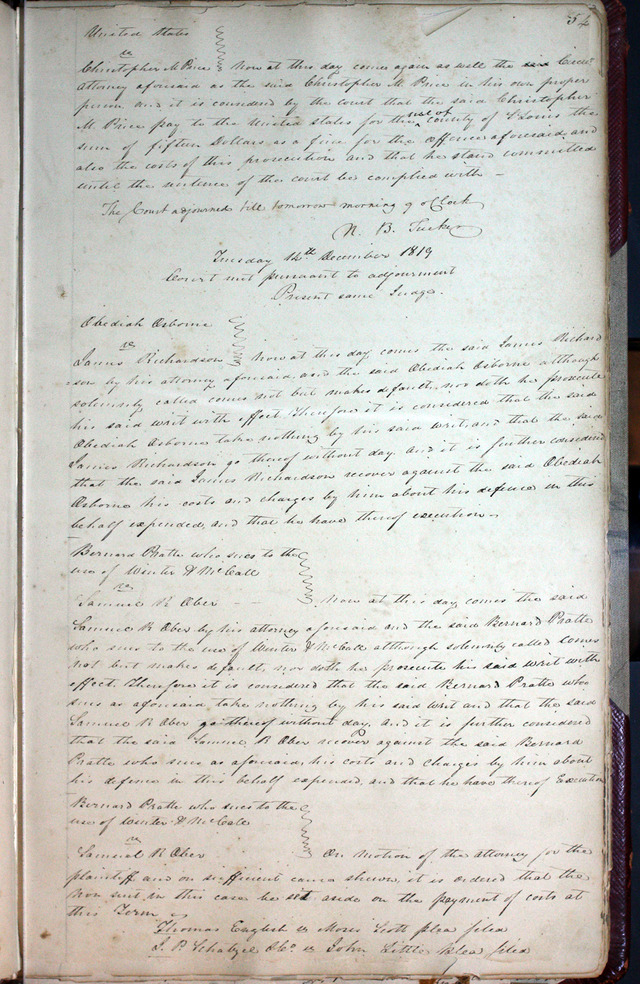 54
United States
vs
Christopher M Price Now at this day comes again as well the said Circt
attorney aforesaid as the said Christopher M. Price in his own proper
person and it is considered by the court that the said Christopher
M. Price pay to the United States for the use of county of St Louis the
sum of fifteen Dollars as a fine for the offence aforesaid and
also the costs of this prosecution and that he stand committed
until the sentence of the court be complied with —
The Court adjourned till tomorrow morning 9 oClock
N. B. Tucker
Tuesday 14th December 1819
Court met pursuant to adjournment
Present same Judge.
Obediah Osborne
vs
James Richardson Now at this day comes the said James Richard
son by his attorney aforesaid and the said Obediah Osborne although
solemnly called comes not but makes default, nor doth he prosecute
his said writ with effect Therefore it is considered that the said
Obediah Osborne take nothing by his said writ, and that the said
James Richardson go thereof without day. and it is further considered
that the said James Richardson recover against the said Obediah
Osborne his costs and charges by him about his defence in this
behalf expended, and that he have thereof execution —
Bernard Pratte who sues to the
use of Winter & McCall
vs
Samuel R Ober - - Now at this day comes the said
Samuel R Ober by his attorney aforesaid and the said Bernard Pratte
who sues to the use of Winter & McCall although solemnly called comes
not but makes default, nor doth he prosecute his said writ with
effect. Therefore it is considered that the said Bernard Pratte who
sues as aforesaid, take nothing by his said writ and that the said
Samuel R Ober go thereof without day. and it is further considered
that the said Samuel R Ober recover against the said Bernard
Pratte who sues as aforesaid, his costs and charges by him about
his defence in this behalf expended, and that he have thereof Execution
Bernard Pratte who sues to the
use of Winter & McCall
vs
Samuel R Ober On motion of the attorney for the
plaintiff and on sufficient cause shewn, it is ordered that the
non suit in this case be set aside on the payment of costs at
this Term
Thomas English vs Moses Scott plea filed
J. P. Schatzell & Co. vs John Little plea filed